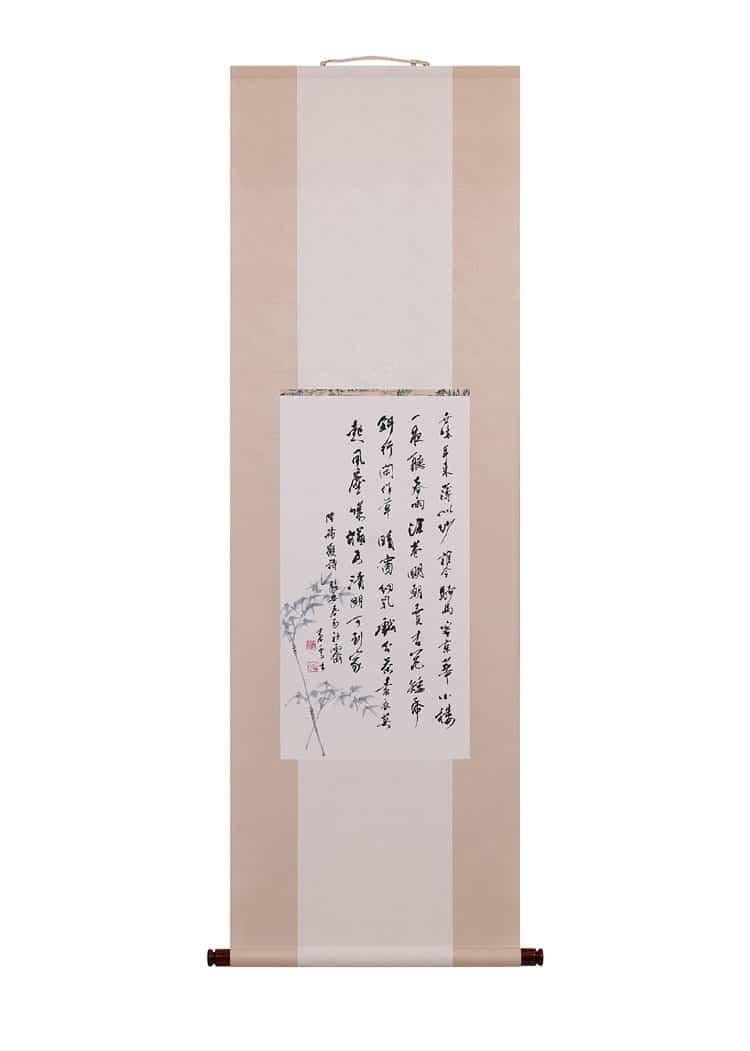 世味年来薄似纱誰令騎馬客京華小楼
一夜聽春雨深巷明朝賣杏花矮帋
斜行閑作草晴窗細乳戲分茶素衣莫
起風塵嘆猶及清明可到家
陸務觀詩臨安春雨初霽